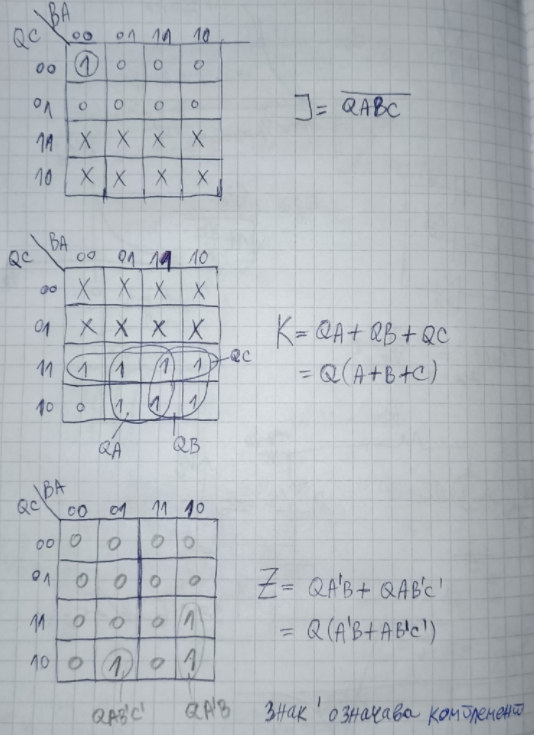 BA
QC 00 01 11 10
00 1 0 0 0
01 0 0 0 0
11 X X X X
10 X X X X
J = \overline{QABC}
BA
QC 00 01 11 10
00 X X X X
01 X X X X
11 1 1 1 1 QC
10 0 1 1 1
QA QB
K = QA + QB + QC
= Q(A+B+C)
BA
QC 00 01 11 10
00 0 0 0 0
01 0 0 0 0
11 0 0 0 1
10 0 1 0 1
QAB'C' QA'B
Z = QA'B + QAB'C'
= Q(A'B+AB'C')
Знак ' означава комплемент